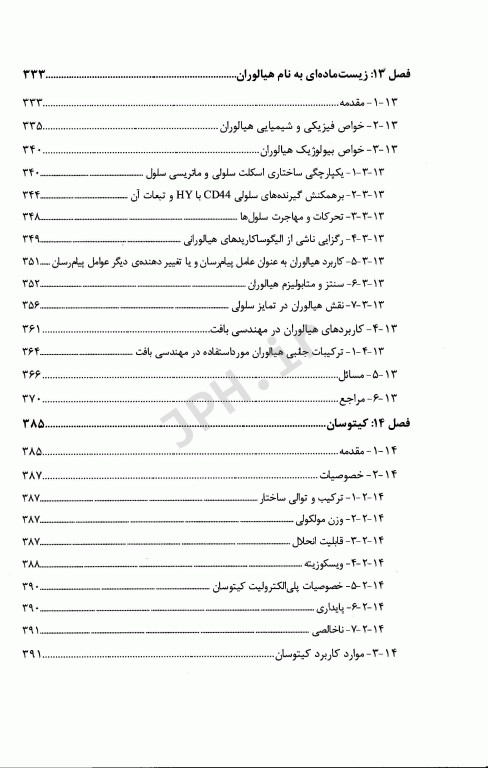 فصل ۱۳: زیست‌ماده‌ای به نام هیالوران ۳۳۳
۱۳-۱- مقدمه ۳۳۳
۱۳-۲- خواص فیزیکی و شیمیایی هیالوران ۳۳۵
۱۳-۳- خواص بیولوژیک هیالوران ۳۴۰
۱۳-۳-۱- یکپارچگی ساختاری اسکلت سلولی و ماتریسی سلول ۳۴۰
۱۳-۳-۲- برهمکنش گیرنده‌های سلولی CD44 با HY و تبعات آن ۳۴۴
۱۳-۳-۳- تحرکات و مهاجرت سلول‌ها ۳۴۸
۱۳-۳-۴- رگزایی ناشی از الیگوساکاریدهای هیالورانی ۳۴۹
۱۳-۳-۵- کاربرد هیالوران به عنوان عامل پیام‌رسان و یا تغییر دهنده‌ی دیگر عوامل پیام‌رسان ۳۵۱
۱۳-۳-۶- سنتز و متابولیزم هیالوران ۳۵۲
۱۳-۳-۷- نقش هیالوران در تمایز سلولی ۳۵۶
۱۳-۴- کاربردهای هیالوران در مهندسی بافت ۳۶۱
۱۳-۴-۱- ترکیبات جلبی هیالوران مورداستفاده در مهندسی بافت ۳۶۴
۱۳-۵- مسائل ۳۶۶
۱۳-۶- مراجع ۳۷۰
فصل ۱۴: کیتوسان ۳۸۵
۱۴-۱- مقدمه ۳۸۵
۱۴-۲- خصوصیات ۳۸۷
۱۴-۲-۱- ترکیب و توالی ساختار ۳۸۷
۱۴-۲-۲- وزن مولکولی ۳۸۷
۱۴-۲-۳- قابلیت انحلال ۳۸۷
۱۴-۲-۴- ویسکوزیته ۳۸۸
۱۴-۲-۵- خصوصیات پلی‌الکترولیت کیتوسان ۳۹۰
۱۴-۲-۶- پایداری ۳۹۰
۱۴-۲-۷- ناخالصی ۳۹۱
۱۴-۳- موارد کاربرد کیتوسان ۳۹۱
JPH.ir